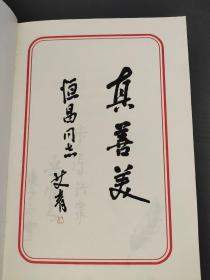 真善美
恒昌同志
艾青